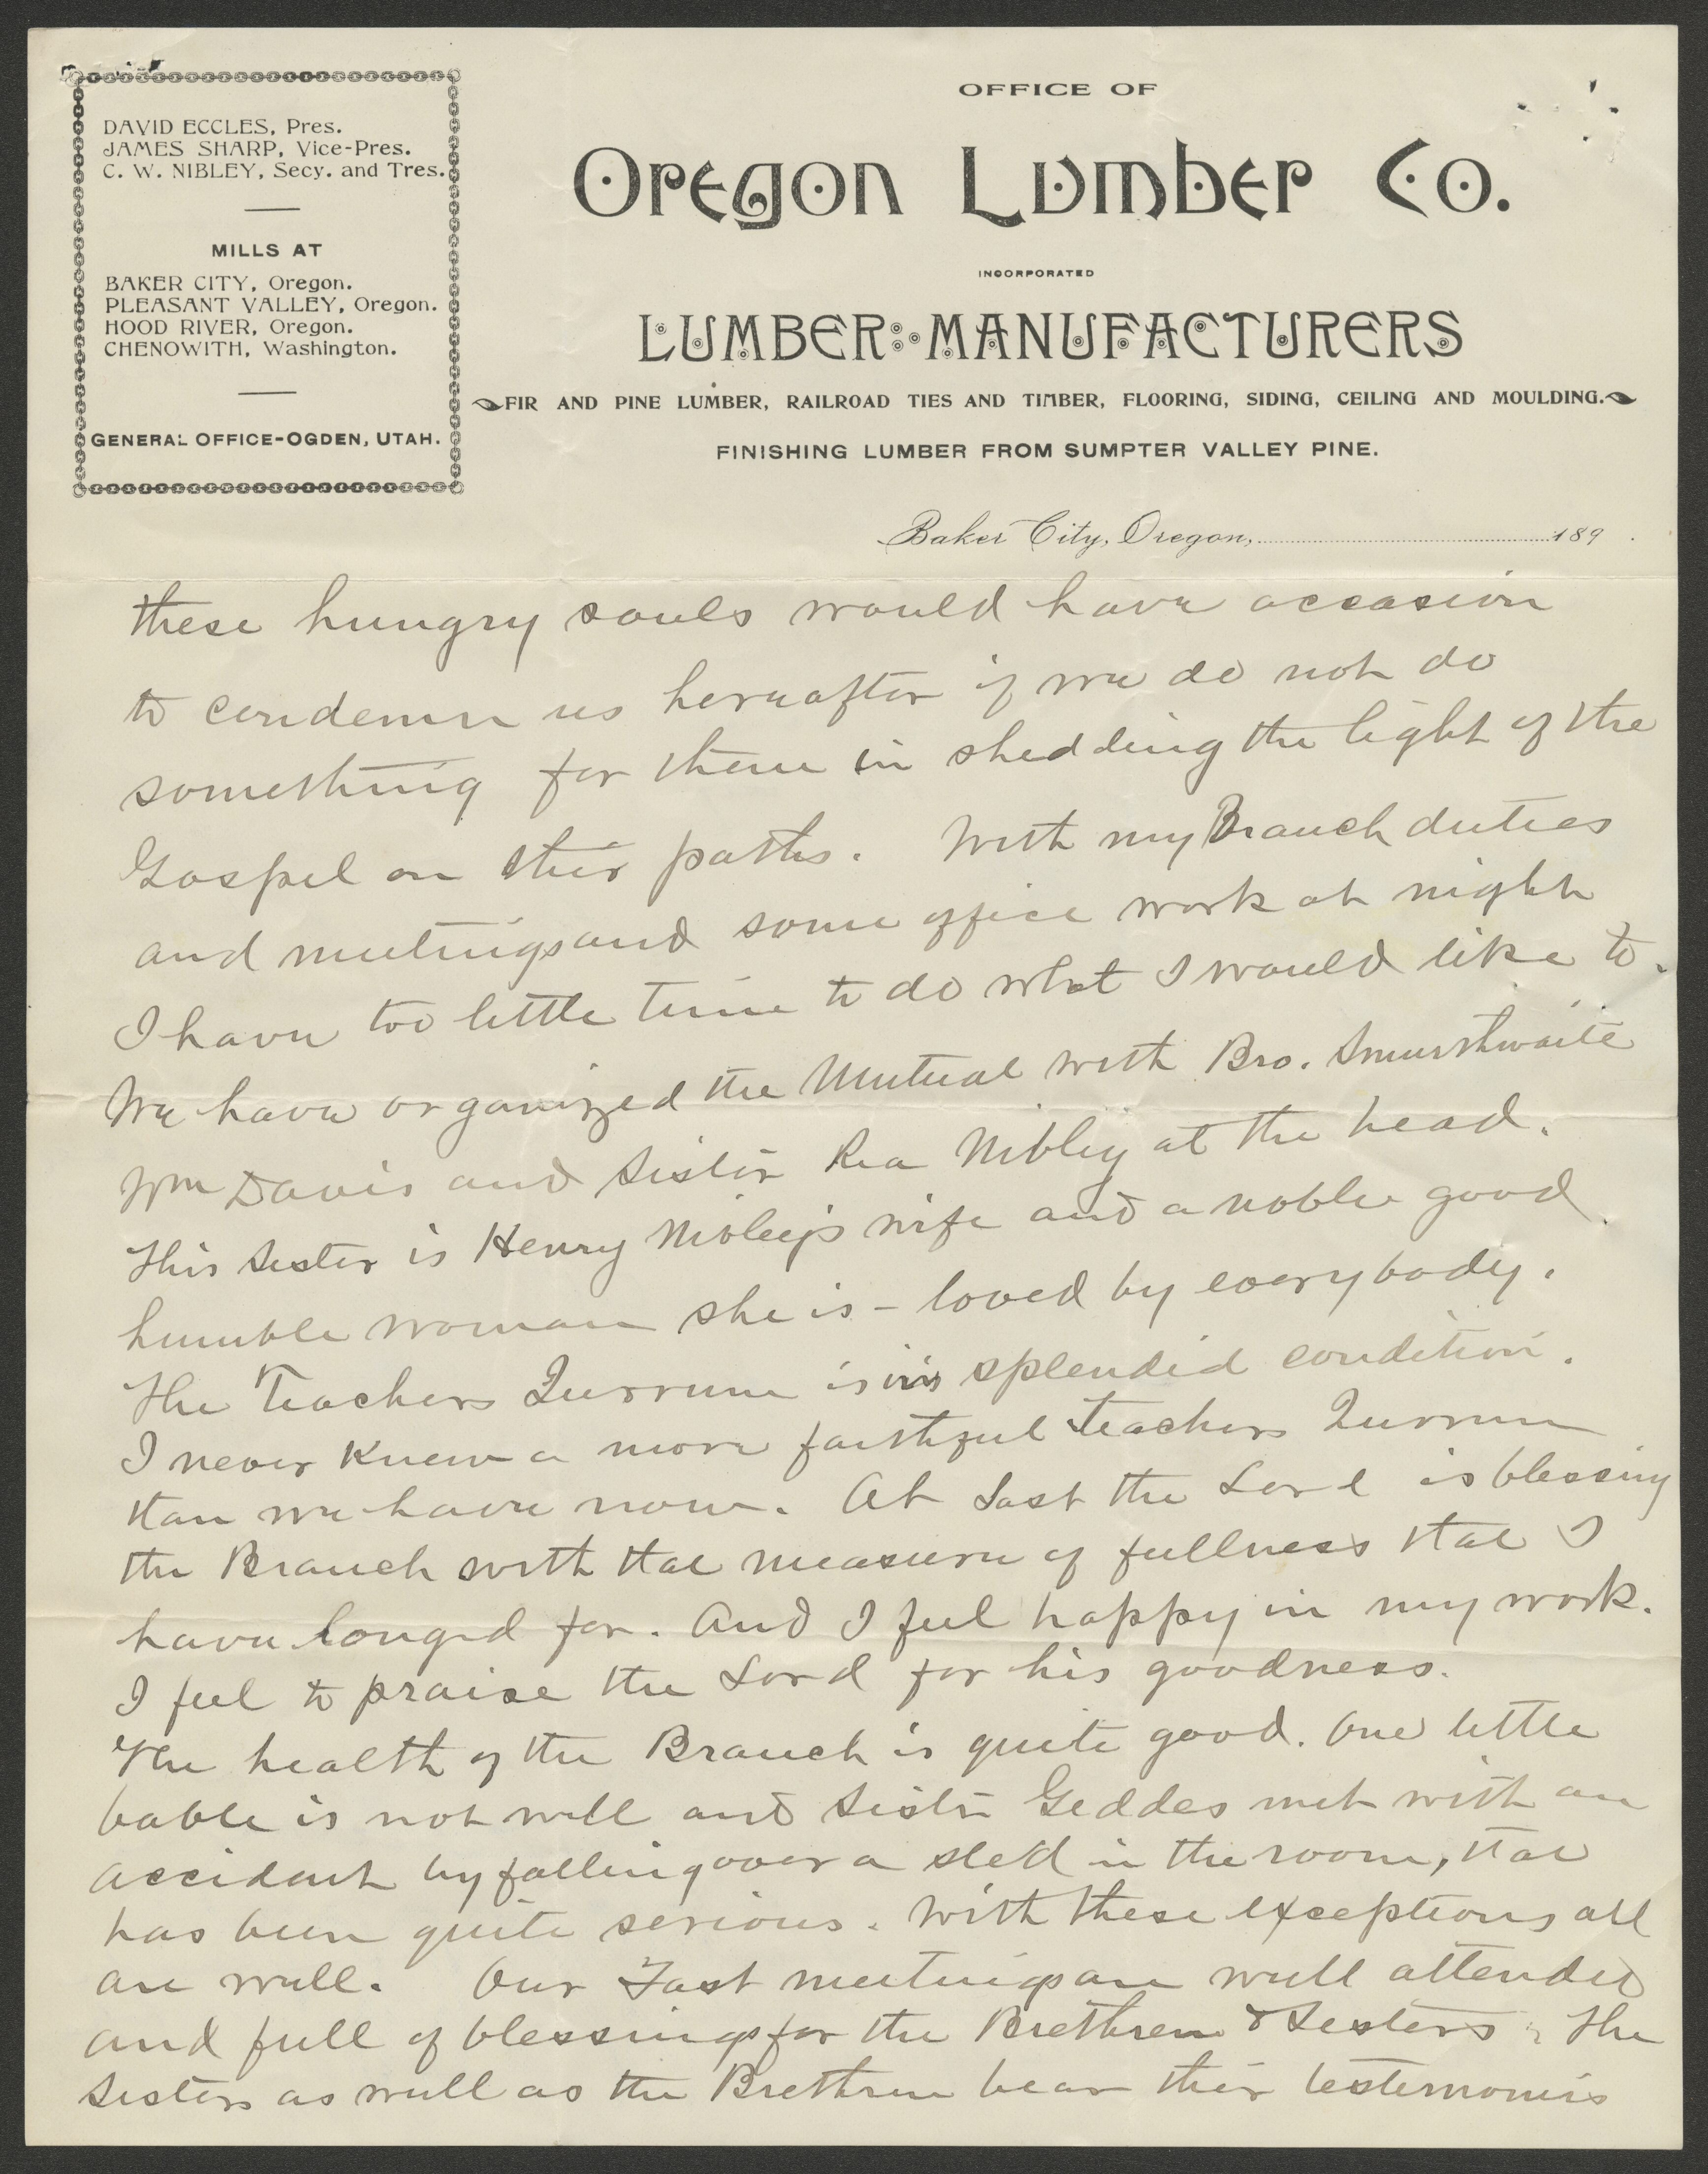 DAVID ECCLES, Pres.
JAMES SHARP, Vice-Pres.
C. W. NIBLEY, Secy. and Tres.
MILLS AT
BAKER CITY, Oregon.
PLEASANT VALLEY, Oregon.
HOOD RIVER, Oregon.
CHENOWITH, Washington.
GENERAL OFFICE-OGDEN, UTAH.
OFFICE OF
OREGON LUMBER CO.
INCORPORATED
LUMBER MANUFACTURERS
FIR AND PINE LUMBER, RAILROAD TIES AND TIMBER, FLOORING, SIDING, CEILING AND MOULDING.
FINISHING LUMBER FROM SUMPTER VALLEY PINE.
Baker City, Oregon, 189
these hungry souls would have occasion
to condemn us hereafter if we do not do
something for them in shedding the light of the
Gospel on their paths. With my Branch duties
and meetings and some office work at night
I have too little time to do what I would like to.
We have organized the Mutual with Bro. Smurthwaite
Wm Davis and Sister Rea Nibley at the head.
This Sister is Henry Nibley's wife and a noble good
humble woman she is - loved by everybody.
The Teachers Quorum is in splendid condition.
I never knew a more faithful Teachers Quorum
than we have now. At Last the Lord is blessing
the Branch with that measure of fullness that I
have longed for. And I feel happy in my work.
I feel to praise the Lord for his goodness.
The health of the Branch is quite good. One little
babe is not well and Sister Geddes met with an
accident by falling over a sled in the room, that
has been quite serious. With these exceptions all
are well. Our Fast meetings are well attended
and full of blessings for the Brethren & Sisters. The
Sisters as well as the Brethren bear their testimonies